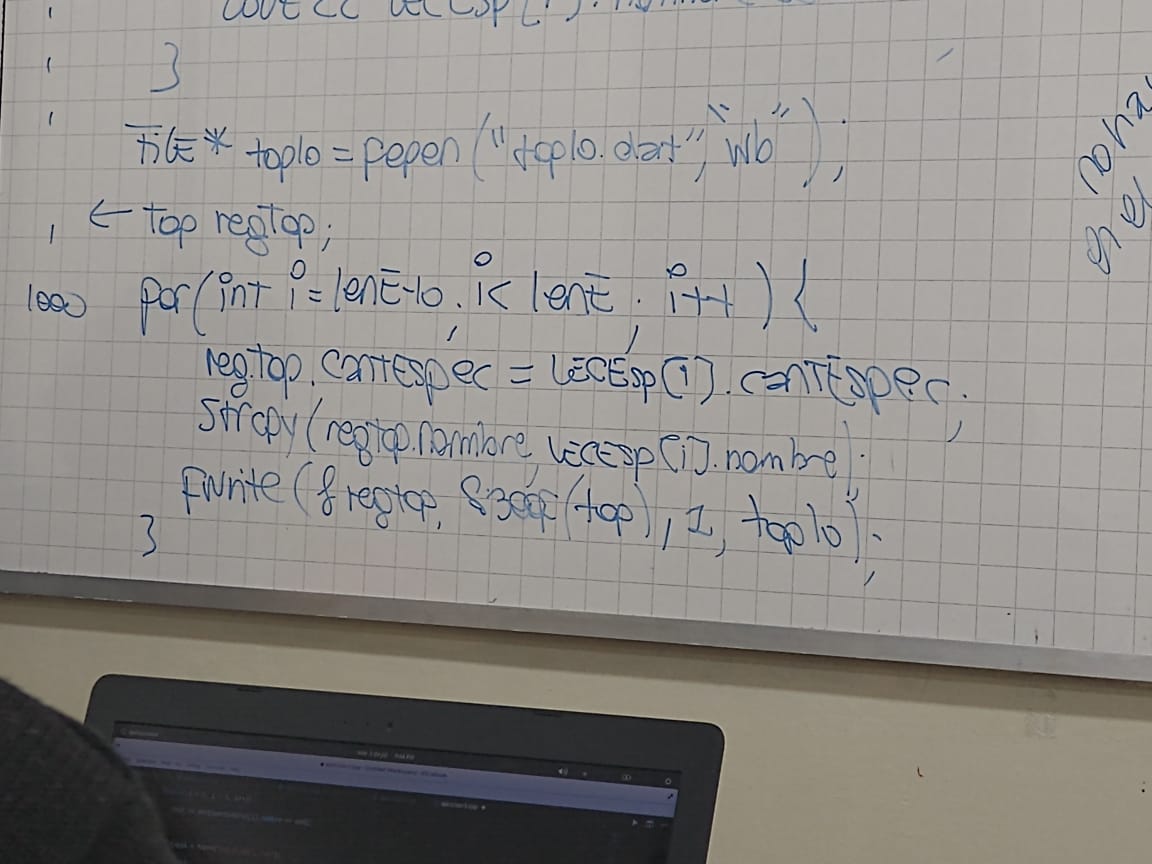 }
FILE* top10 = fopen("top10.dat", "wb");
← top regTop;
1000 for(int i = lenE-10; i < lenE; i++) {
regtop.cantEspec = VECEsp[i].cantEspec;
strcpy(regtop.nombre, VECEsp[i].nombre);
fwrite(&regtop, sizeof(top), 1, top10);
}